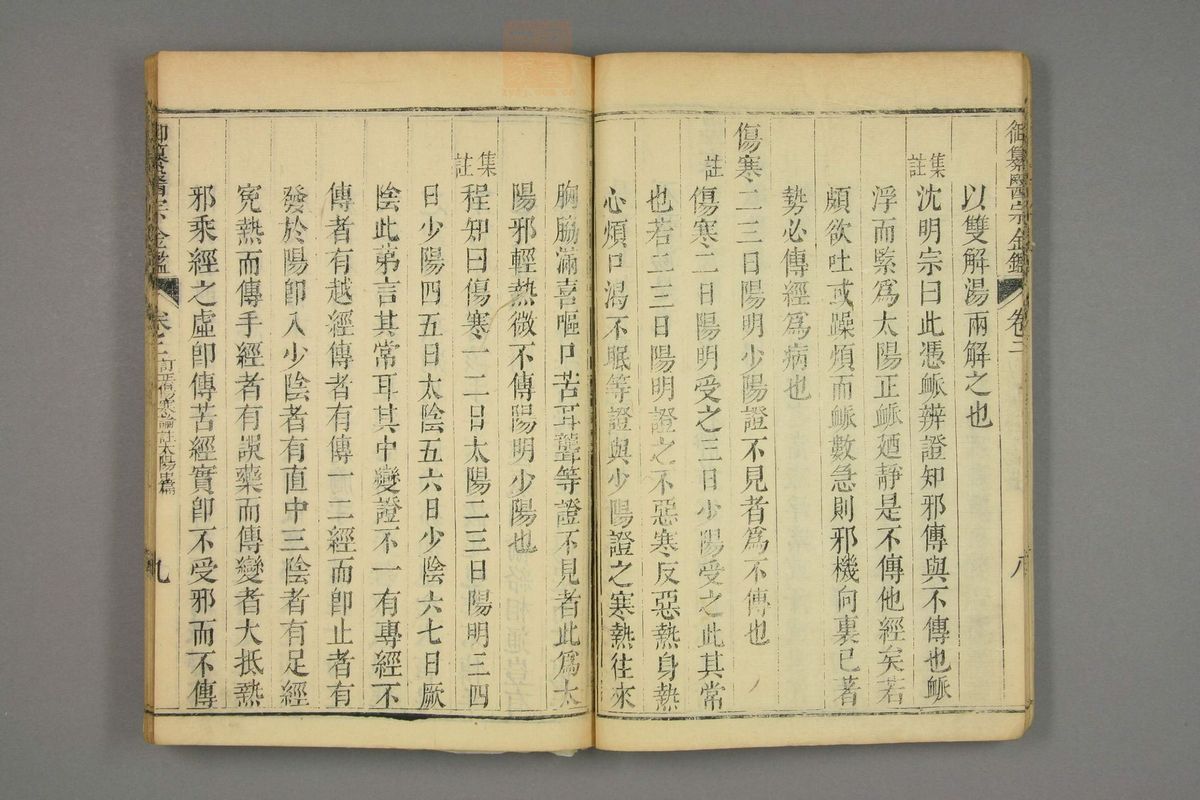 御纂醫宗金鑑 卷二 八
以雙解湯兩解之也
集註
沈明宗曰此憑脈辨證知邪傳與不傳也脈
浮而緊為太陽正脈廼靜是不傳他經矣若
頗欲吐或躁煩而脈數急則邪機向裏已著
勢必傳經為病也
傷寒二三日陽明少陽證不見者為不傳也
註
傷寒二日陽明受之三日少陽受之此其常
也若二三日陽明證之不惡寒反惡熱身熱
心煩口渴不眠等證與少陽證之寒熱往來
胸脇滿喜嘔口苦耳聾等證不見者此為太
陽邪輕熱微不傳陽明少陽也
集註
程知曰傷寒一二日太陽二三日陽明三四
日少陽四五日太陰五六日少陰六七日厥
陰此第言其常耳其中變證不一有專經不
傳者有越經傳者有傳一二經而即止者有
發於陽即入少陰者有直中三陰者有足經
寃熱而傳手經者有誤藥而傳變者大抵熱
邪乘經之虛即傳苦經實即不受邪而不傳
御纂醫宗金鑑 卷二 訂正傷寒論註太陽中篇 九